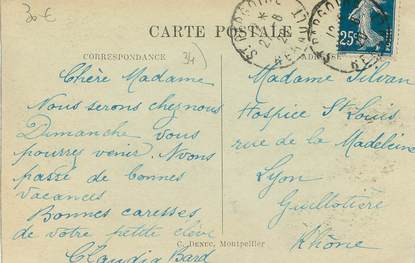 30€
CARTE POSTALE
CORRESPONDANCE
34
Chère Madame
Nous serons chez nous
Dimanche vous
pourrez venir. Nous
passé de bonnes
vacances
Bonnes caresses
de votre petite élève
Claudia Bard
Madame Silvan
Hospice St Louis
rue de la Madeleine
Lyon
Guillotière
Rhône
C. Deneu, Montpellier
25